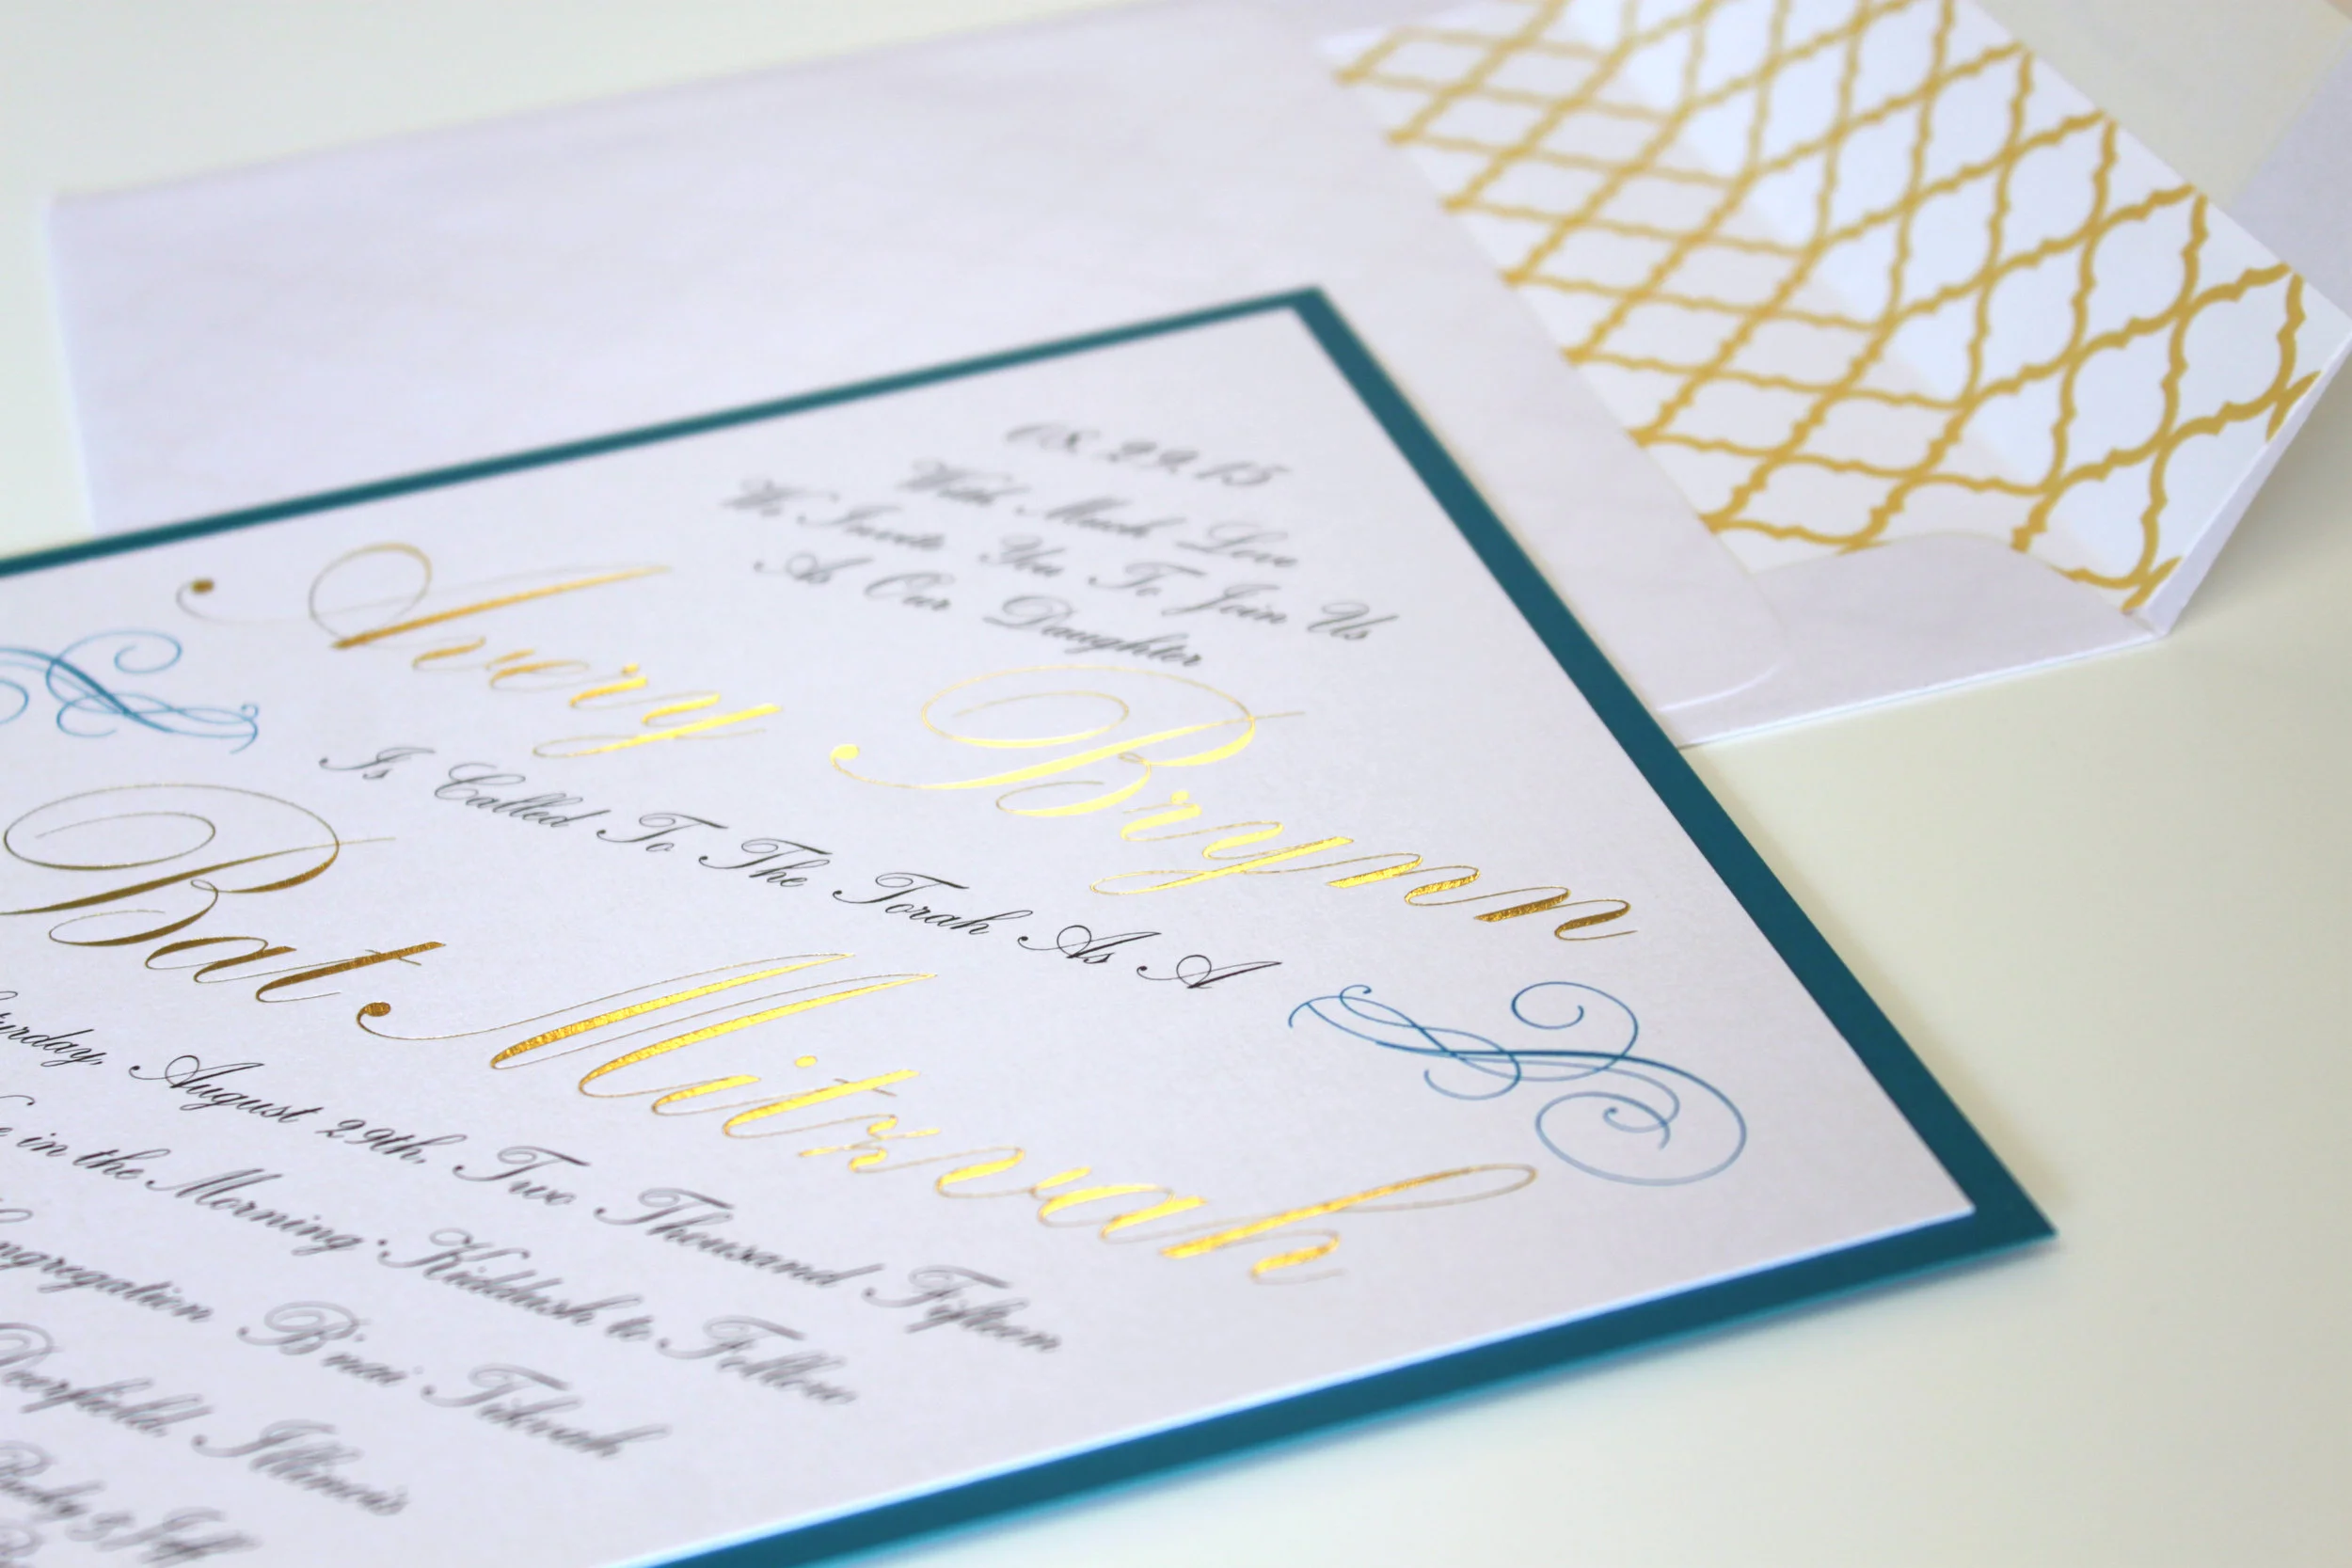 08.29.15
With Much Love
We Invite You To Join Us
As Our Daughter
Avery Brynn
Is Called To The Torah As A
Bat Mitzvah
August 29th, Two Thousand Fifteen
in the Morning · Kiddush to Follow
B'nai Tikvah
Deerfield, Illinois